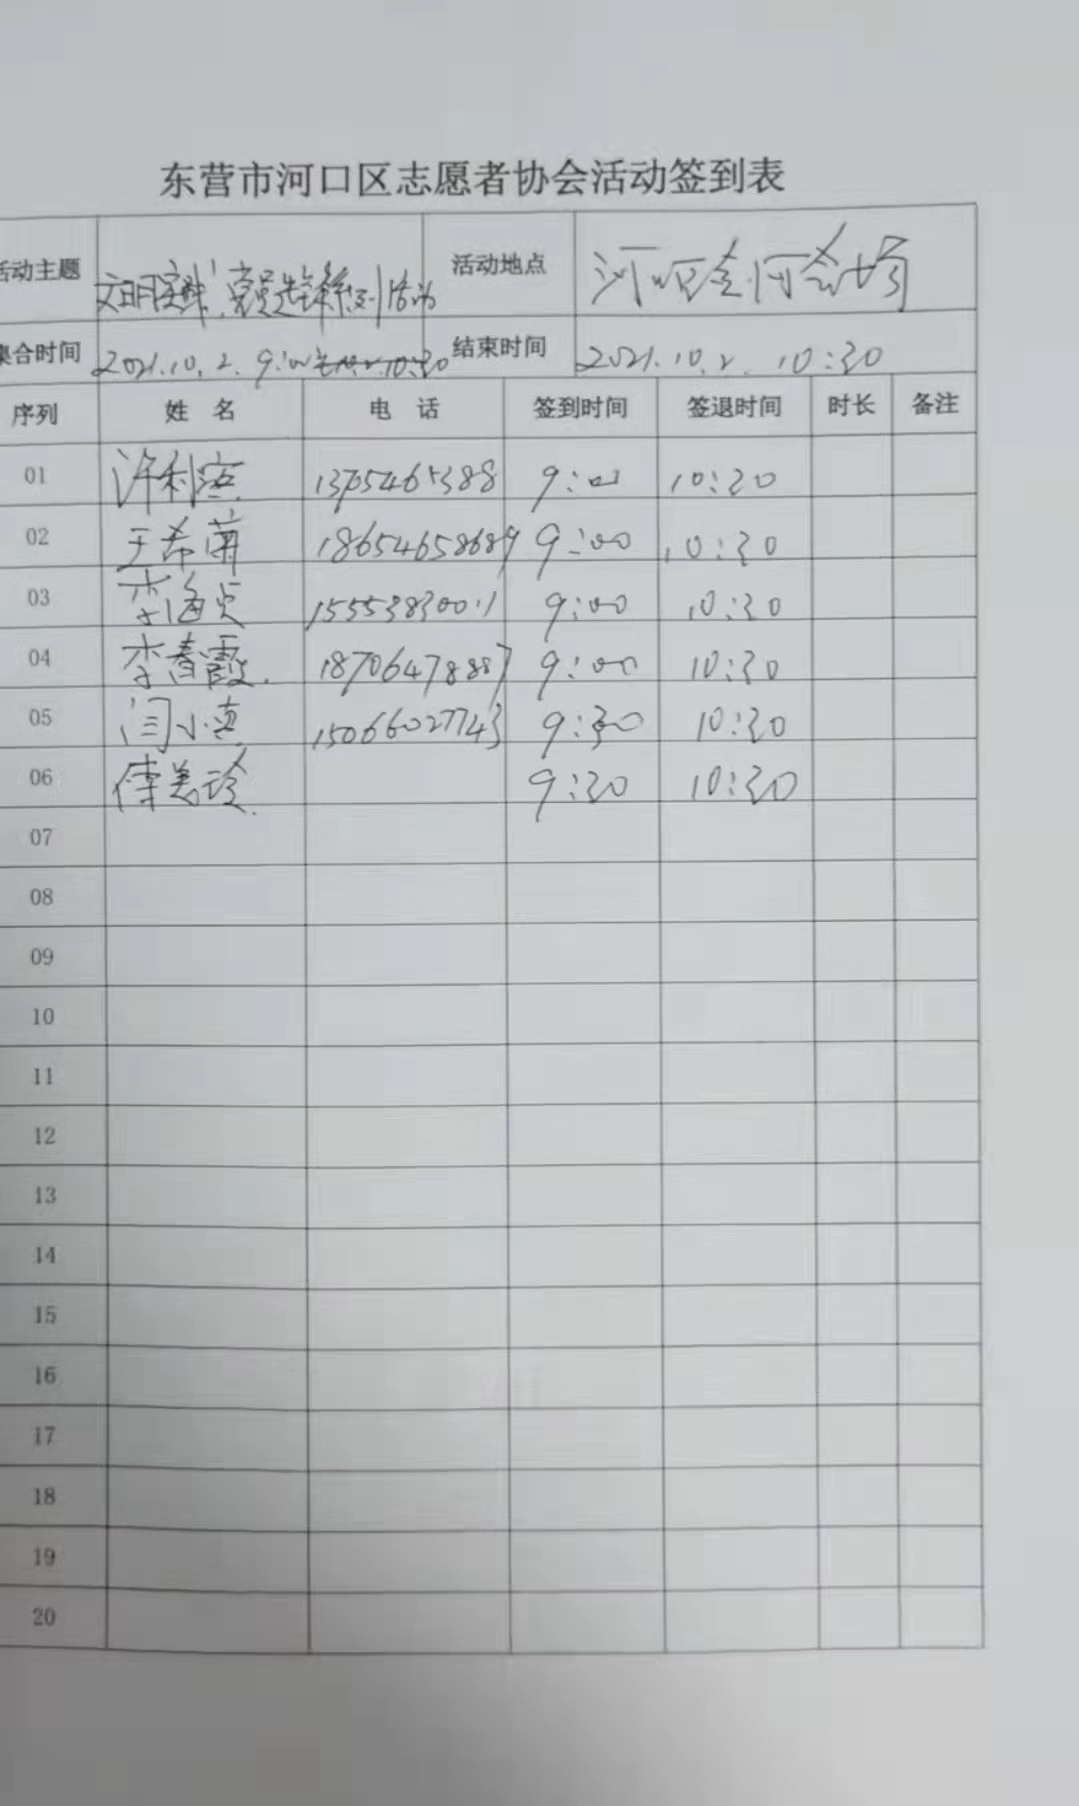 东营市河口区志愿者协会活动签到表
活动主题 文明实践 党员先锋系列活动 活动地点 河口区
集合时间 2021.10.2. 9:00 结束时间 2021.10.2. 10:30
序列 姓 名 电 话 签到时间 签退时间 时长 备注
01 许利 13705465388 9:00 10:30
02 王希 18654658689 9:00 10:30
03 李海贞 15553830011 9:00 10:30
04 李春霞 18706478887 9:00 10:30
05 闫小真 15066027743 9:30 10:30
06 傅美玲 9:30 10:30
07
08
09
10
11
12
13
14
15
16
17
18
19
20